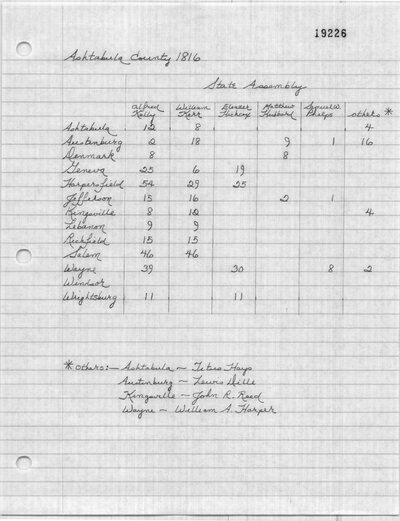 19226
Ashtabula County 1816
State Assembly
Alfred Kelly William Kerr Eleazer Hickox Matthew Hubbard Samuel W. Phelps others *
Ashtabula 12 8 4
Austenburg 2 18 9 1 16
Denmark 8 8
Geneva 25 6 19
Harpersfield 54 29 25
Jefferson 15 16 2 1
Kingsville 8 12 4
Lebanon 9 9
Richfield 15 15
Salem 46 46
Wayne 39 30 8 2
Windsor
Wrightsburg 11 11
* others:— Ashtabula — Titus Hays
Austenburg — Lewis Dille
Kingsville — John R. Reed
Wayne — William A. Harper